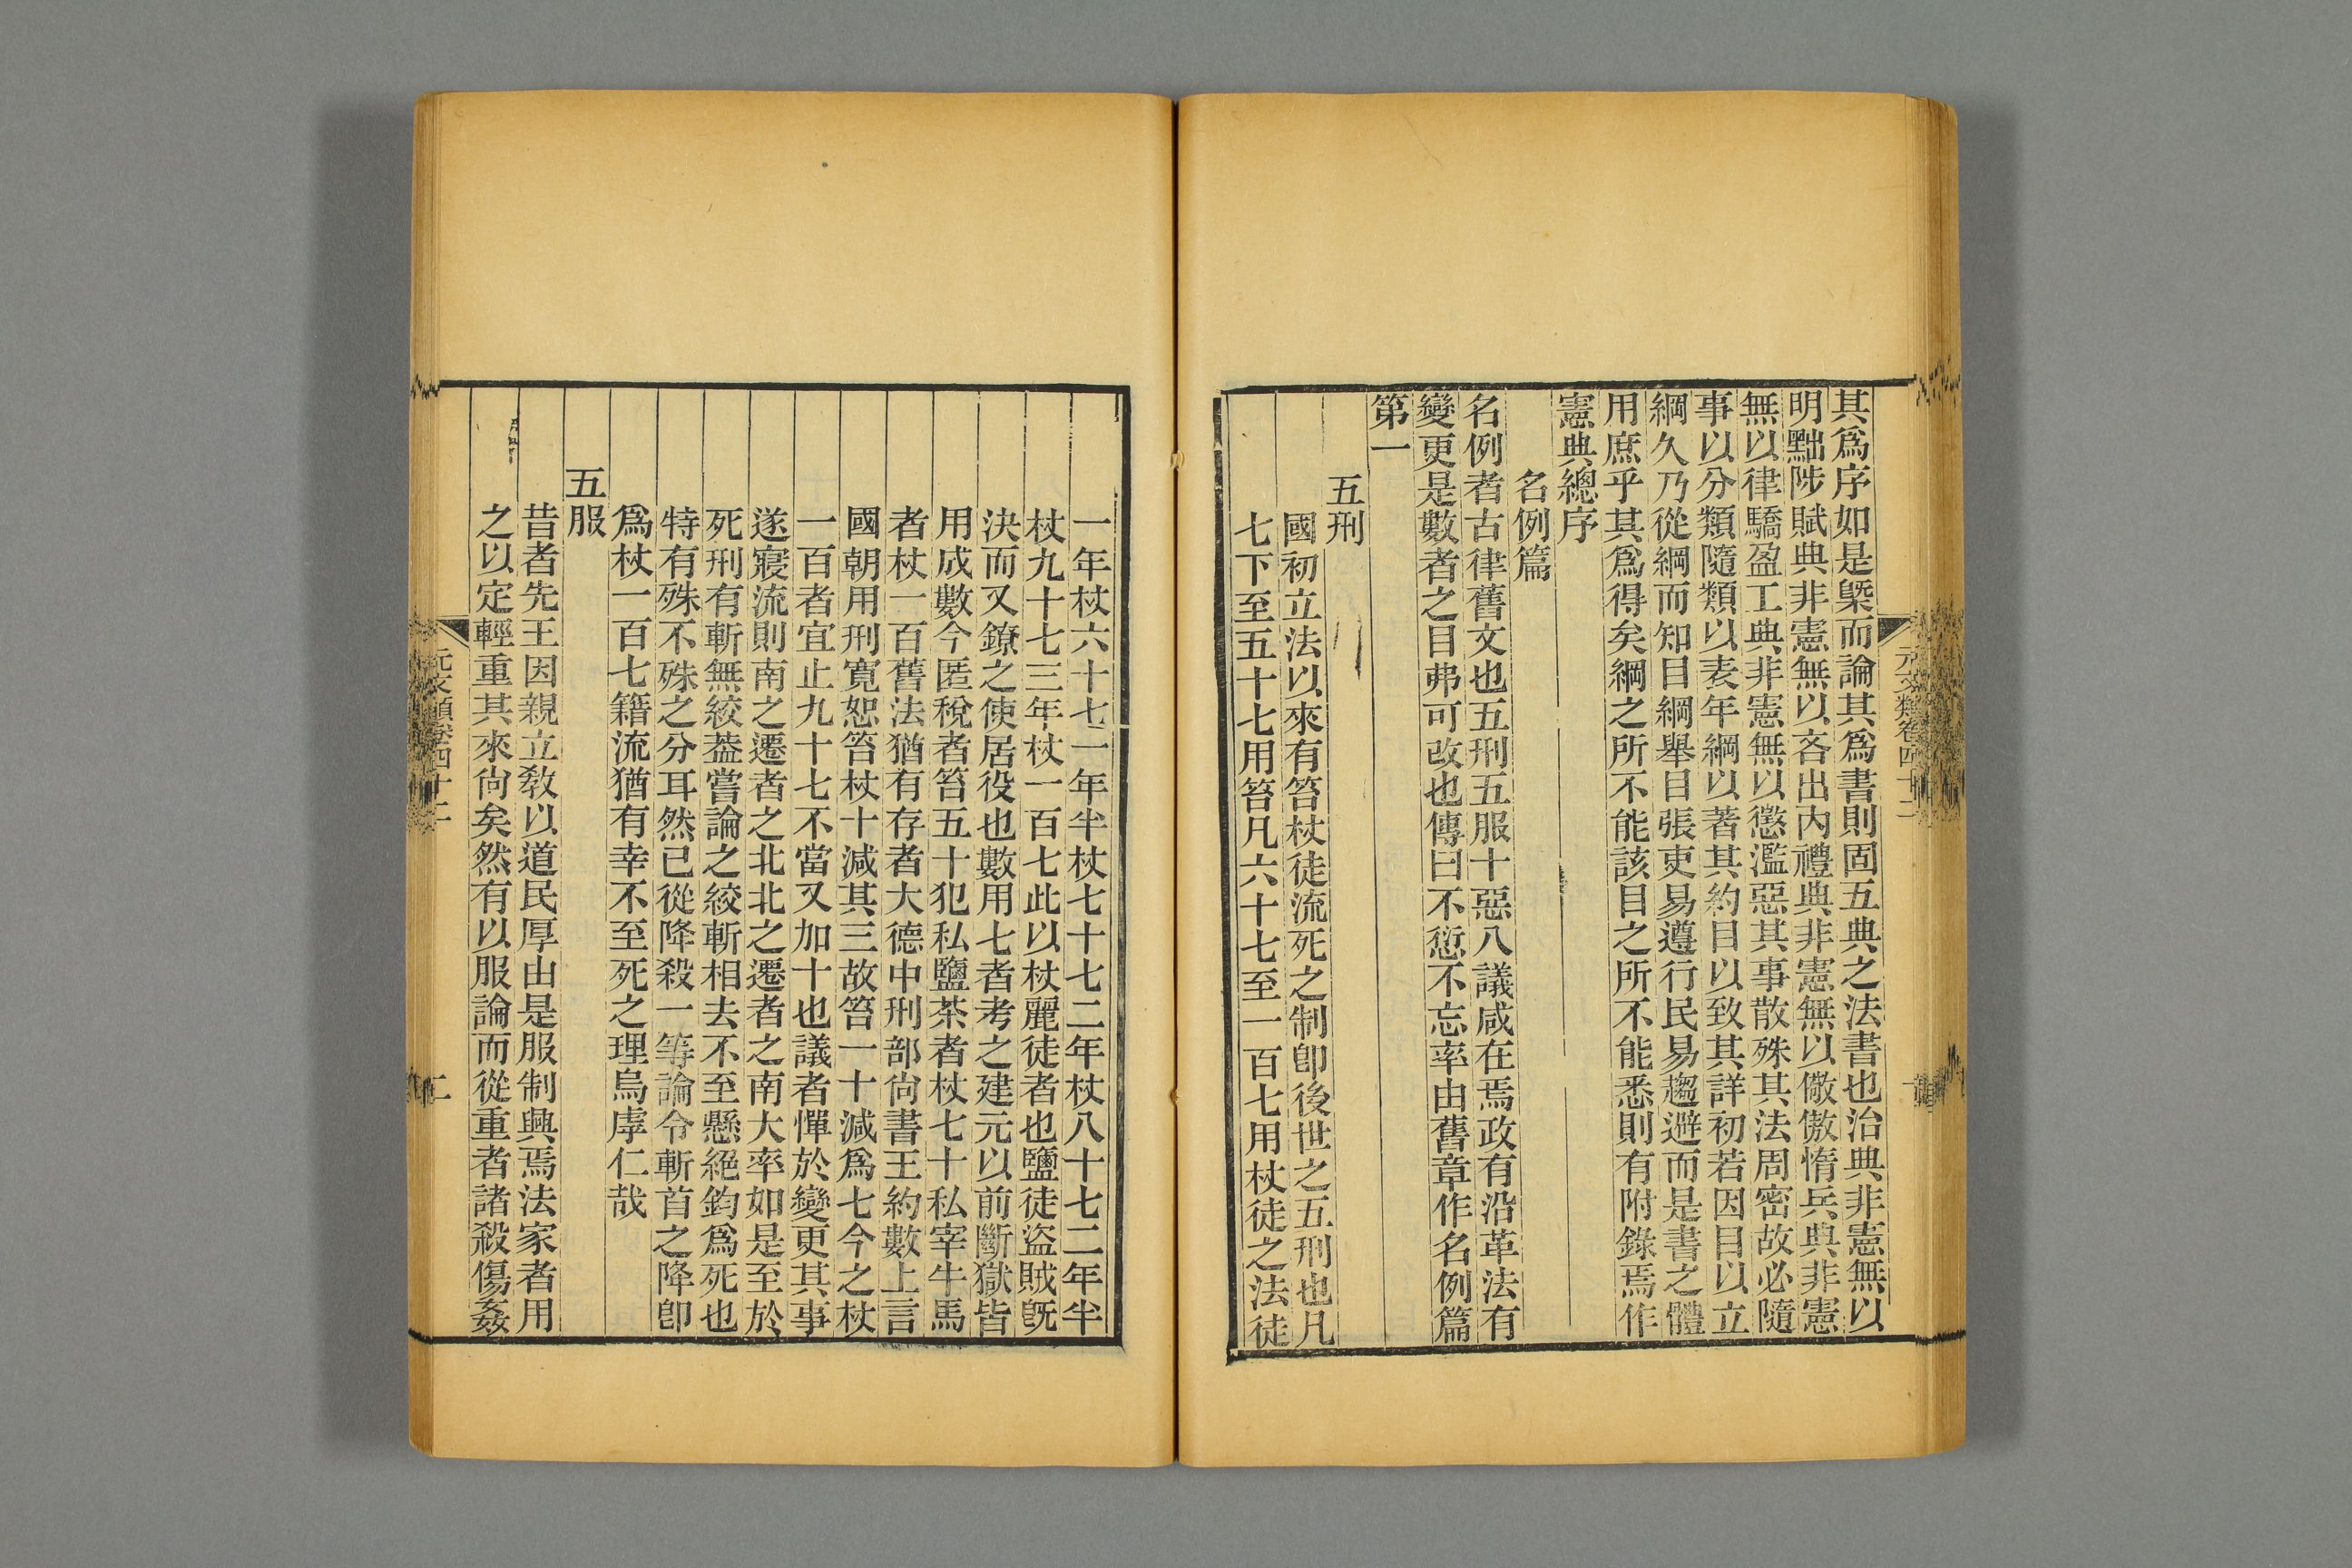 其爲序如是槩而論其爲書則固五典之法書也治典非憲無以
明黜陟賦典非憲無以吝出內禮典非憲無以儆傲惰兵典非憲
無以律驕盈工典非憲無以懲濫惡其事散殊其法周密故必隨
事以分類隨類以表年綱以著其約目以致其詳初若因目以立
綱久乃從綱而知目綱舉目張吏易遵行民易趨避而是書之體
用庶乎其爲得矣綱之所不能該目之所不能悉則有附錄焉作
憲典總序
名例篇
名例者古律舊文也五刑五服十惡八議咸在焉政有沿革法有
變更是數者之目弗可改也傳曰不愆不忘率由舊章作名例篇
第一
五刑
國初立法以來有笞杖徒流死之制卽後世之五刑也凡
七下至五十七用笞凡六十七至一百七用杖徒之法徒
一年杖六十七一年半杖七十七二年杖八十七二年半
杖九十七三年杖一百七此以杖麗徒者也鹽徒盜賊旣
決而又鐐之使居役也數用七者考之建元以前斷獄皆
用成數今匿稅者笞五十犯私鹽茶者杖七十私宰牛馬
者杖一百舊法猶有存者大德中刑部尙書王約數上言
國朝用刑寬恕笞杖十減其三故笞一十減爲七今之杖
一百者宜止九十七不當又加十也議者憚於變更其事
遂寢流則南之遷者之北北之遷者之南大率如是至於
死刑有斬無絞葢嘗論之絞斬相去不至懸絕鈞爲死也
特有殊不殊之分耳然已從降殺一等論令斬首之降卽
爲杖一百七籍流猶有幸不至死之理烏虖仁哉
五服
昔者先王因親立敎以道民厚由是服制興焉法家者用
之以定輕重其來尙矣然有以服論而從重者諸殺傷姦
元文類卷四十二
二